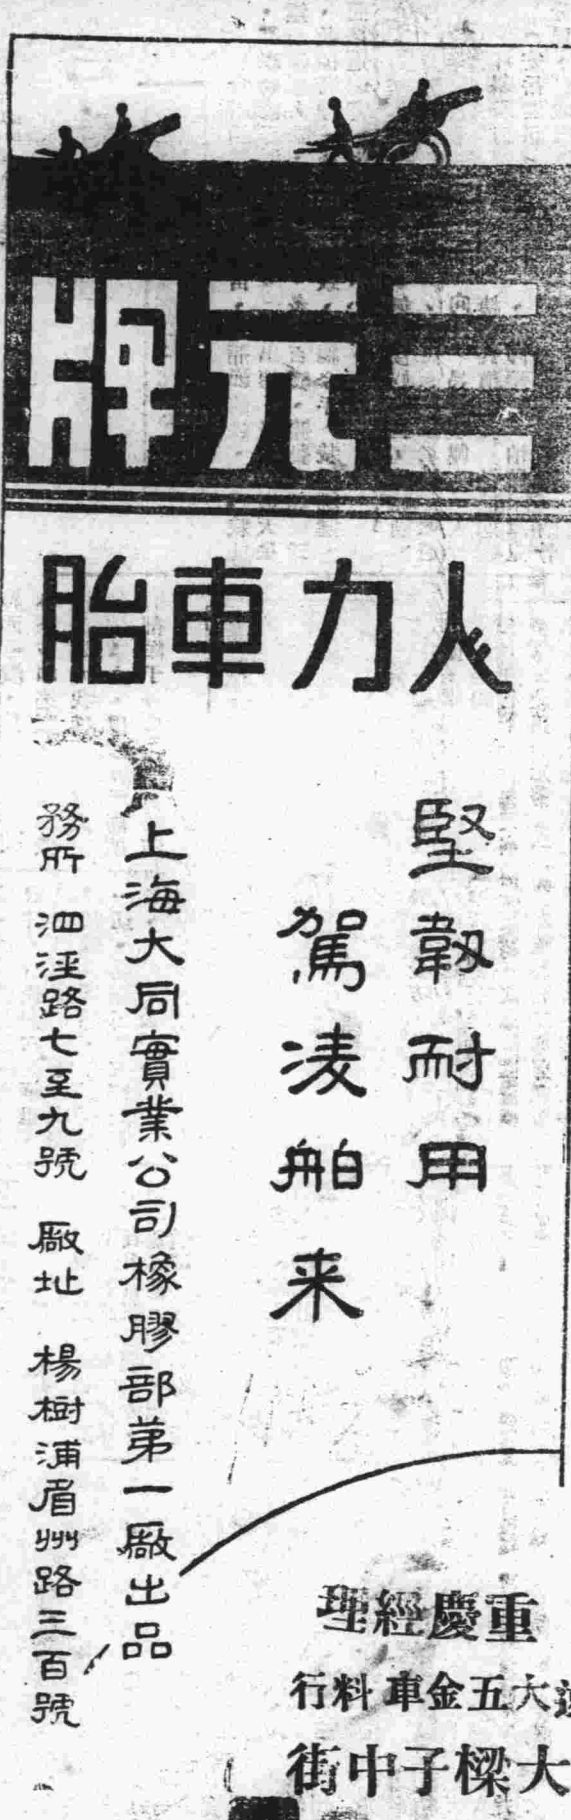 三元牌
人力車胎
堅韌耐用
駕凌舶来
上海大同實業公司橡膠部第一廠出品
務所 泗涇路七至九號 廠址 楊樹浦眉州路三百號
重慶經理
大五金車料行
大樑子中街